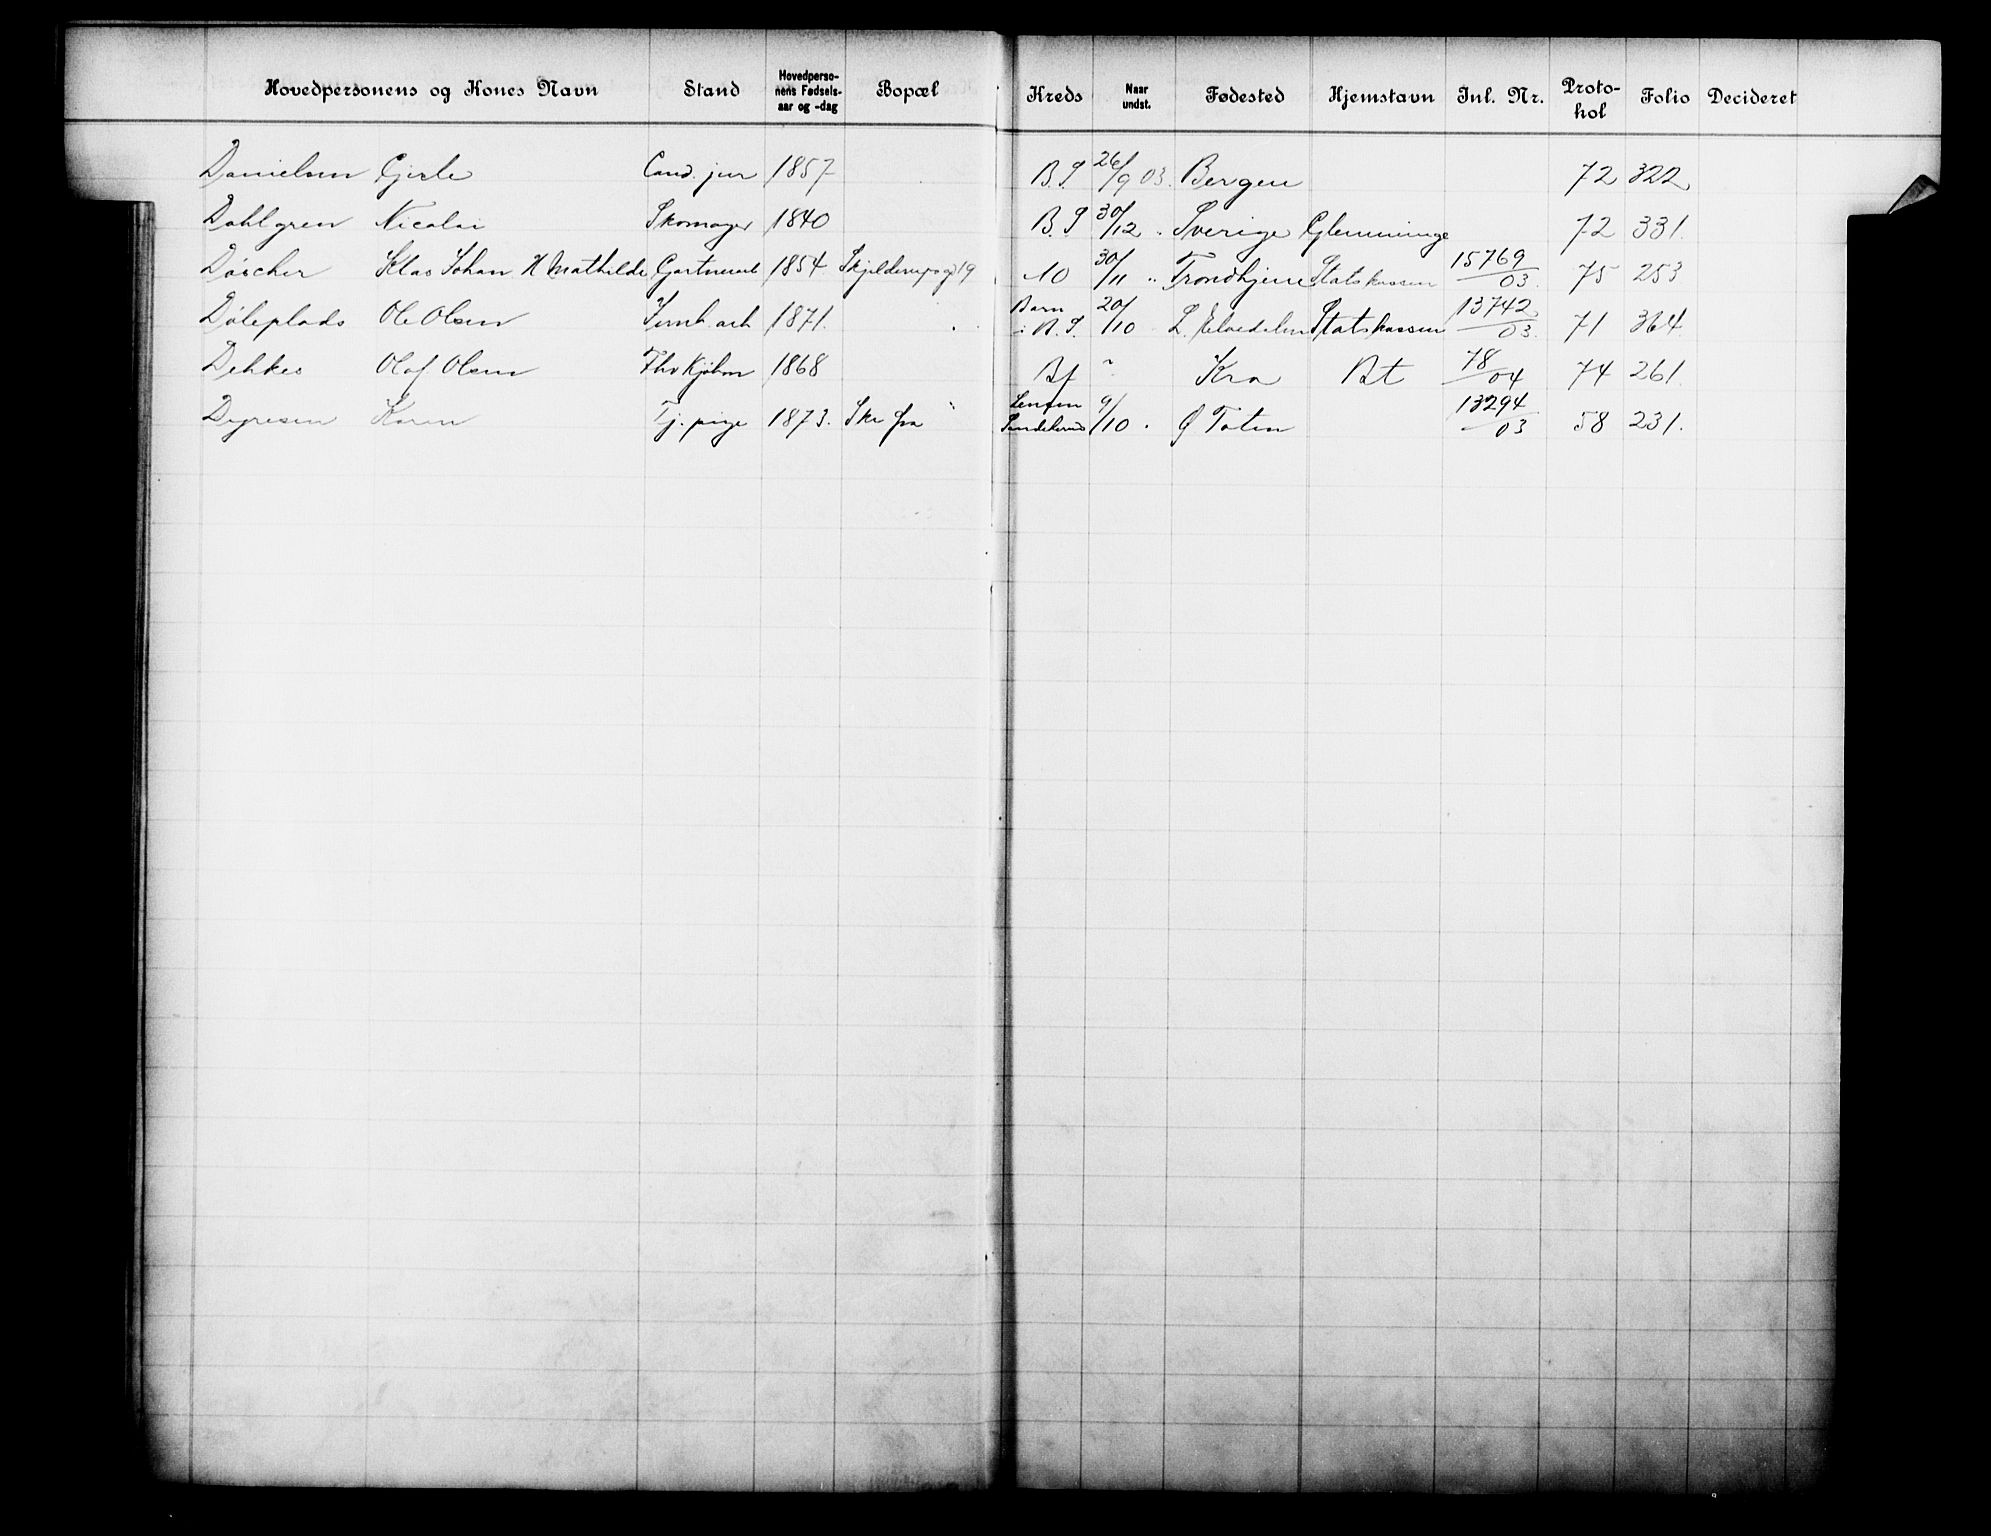 Hovedpersonens og Kones Navn Stand Hovedpersonens Fødselsaar og -dag Bopæl Kreds Naar undst. Fødested Hjemstavn Inl. Nr. Protohol Folio Decideret
Danielsen Gjerle Cand. jur 1857 B.S 26/9 03. Bergen 72 322
Dahlgren Nicolai Skomager 1840 B.S 30/12 " Sverige Glemminge 72 331.
Døscher Klas Johan H Mathilde Gartnerarb 1854 Skjelderupsgd 19 10 30/11 " Trondhjem Statskassen 15769/03. 75 253
Døleplads Ole Olsen 1871. Barn i B.S. 20/10 Statskassen 13742/03. 71 364
Dehkes Olof Olsen 1868 Bf " Kra Bt 78/04 74 261.
Dyresen Karen Tj. pige 1873. Ske fra 9/10 " Ø Toten 13294/03 58 231.